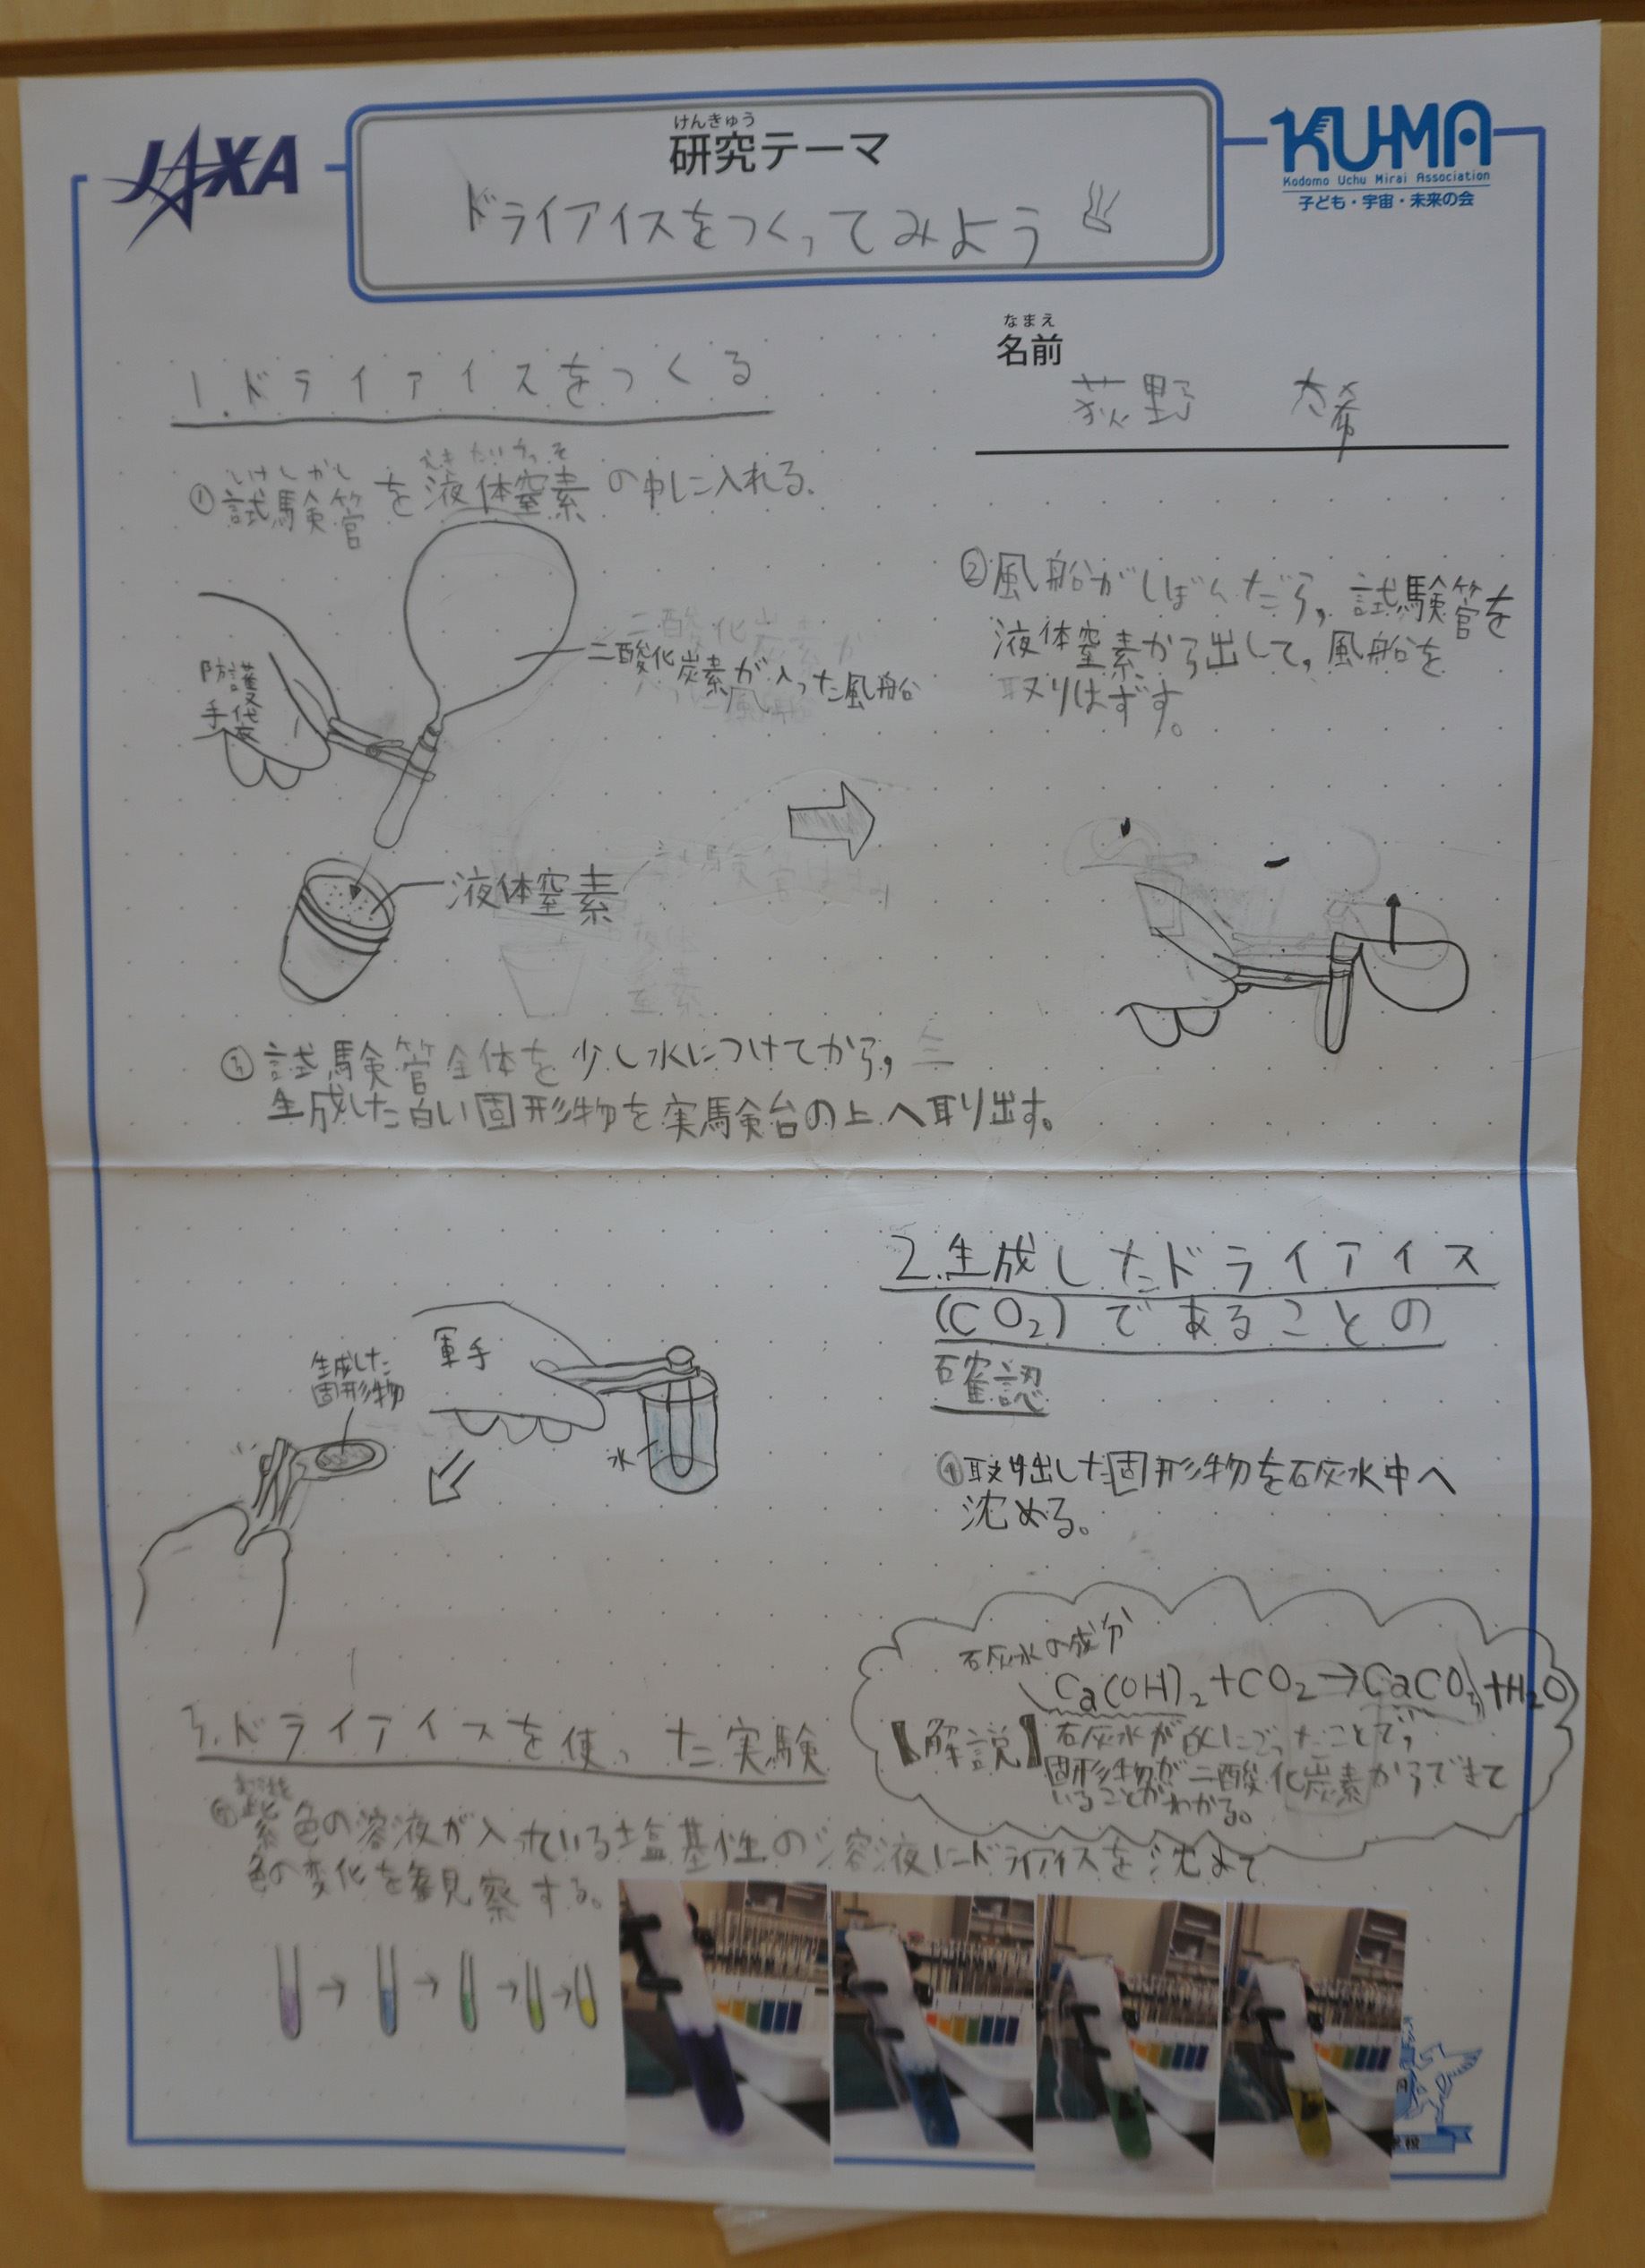 JAXA
けんきゅう
研究テーマ
ドライアイスをつくってみよう
KU-MA
Kodomo Uchu Mirai Association
子ども・宇宙・未来の会
なまえ
名前
荻野 大希
1.ドライアイスをつくる
しけんかん えきたいちっそ
①試験管を液体窒素の中に入れる。
二酸化炭素が入った風船
防護
手袋
液体窒素
②風船がしぼんだら,試験管を
液体窒素から出して,風船を
取りはずす。
③試験管全体を少し水につけてから,
生成した白い固形物を実験台の上へ取り出す。
生成した
固形物
軍手
水
2.生成したドライアイス
(CO₂)であることの
確認
④取り出した固形物を石灰水中へ
沈める。
石灰水の成分
Ca(OH)₂+CO₂→CaCO₃+H₂O
【解説】石灰水が白くにごったことで,
固形物が二酸化炭素からできて
いることがわかる。
3.ドライアイスを使った実験
紫色の溶液が入れている塩基性の溶液にドライアイスを沈めて
色の変化を観察する。